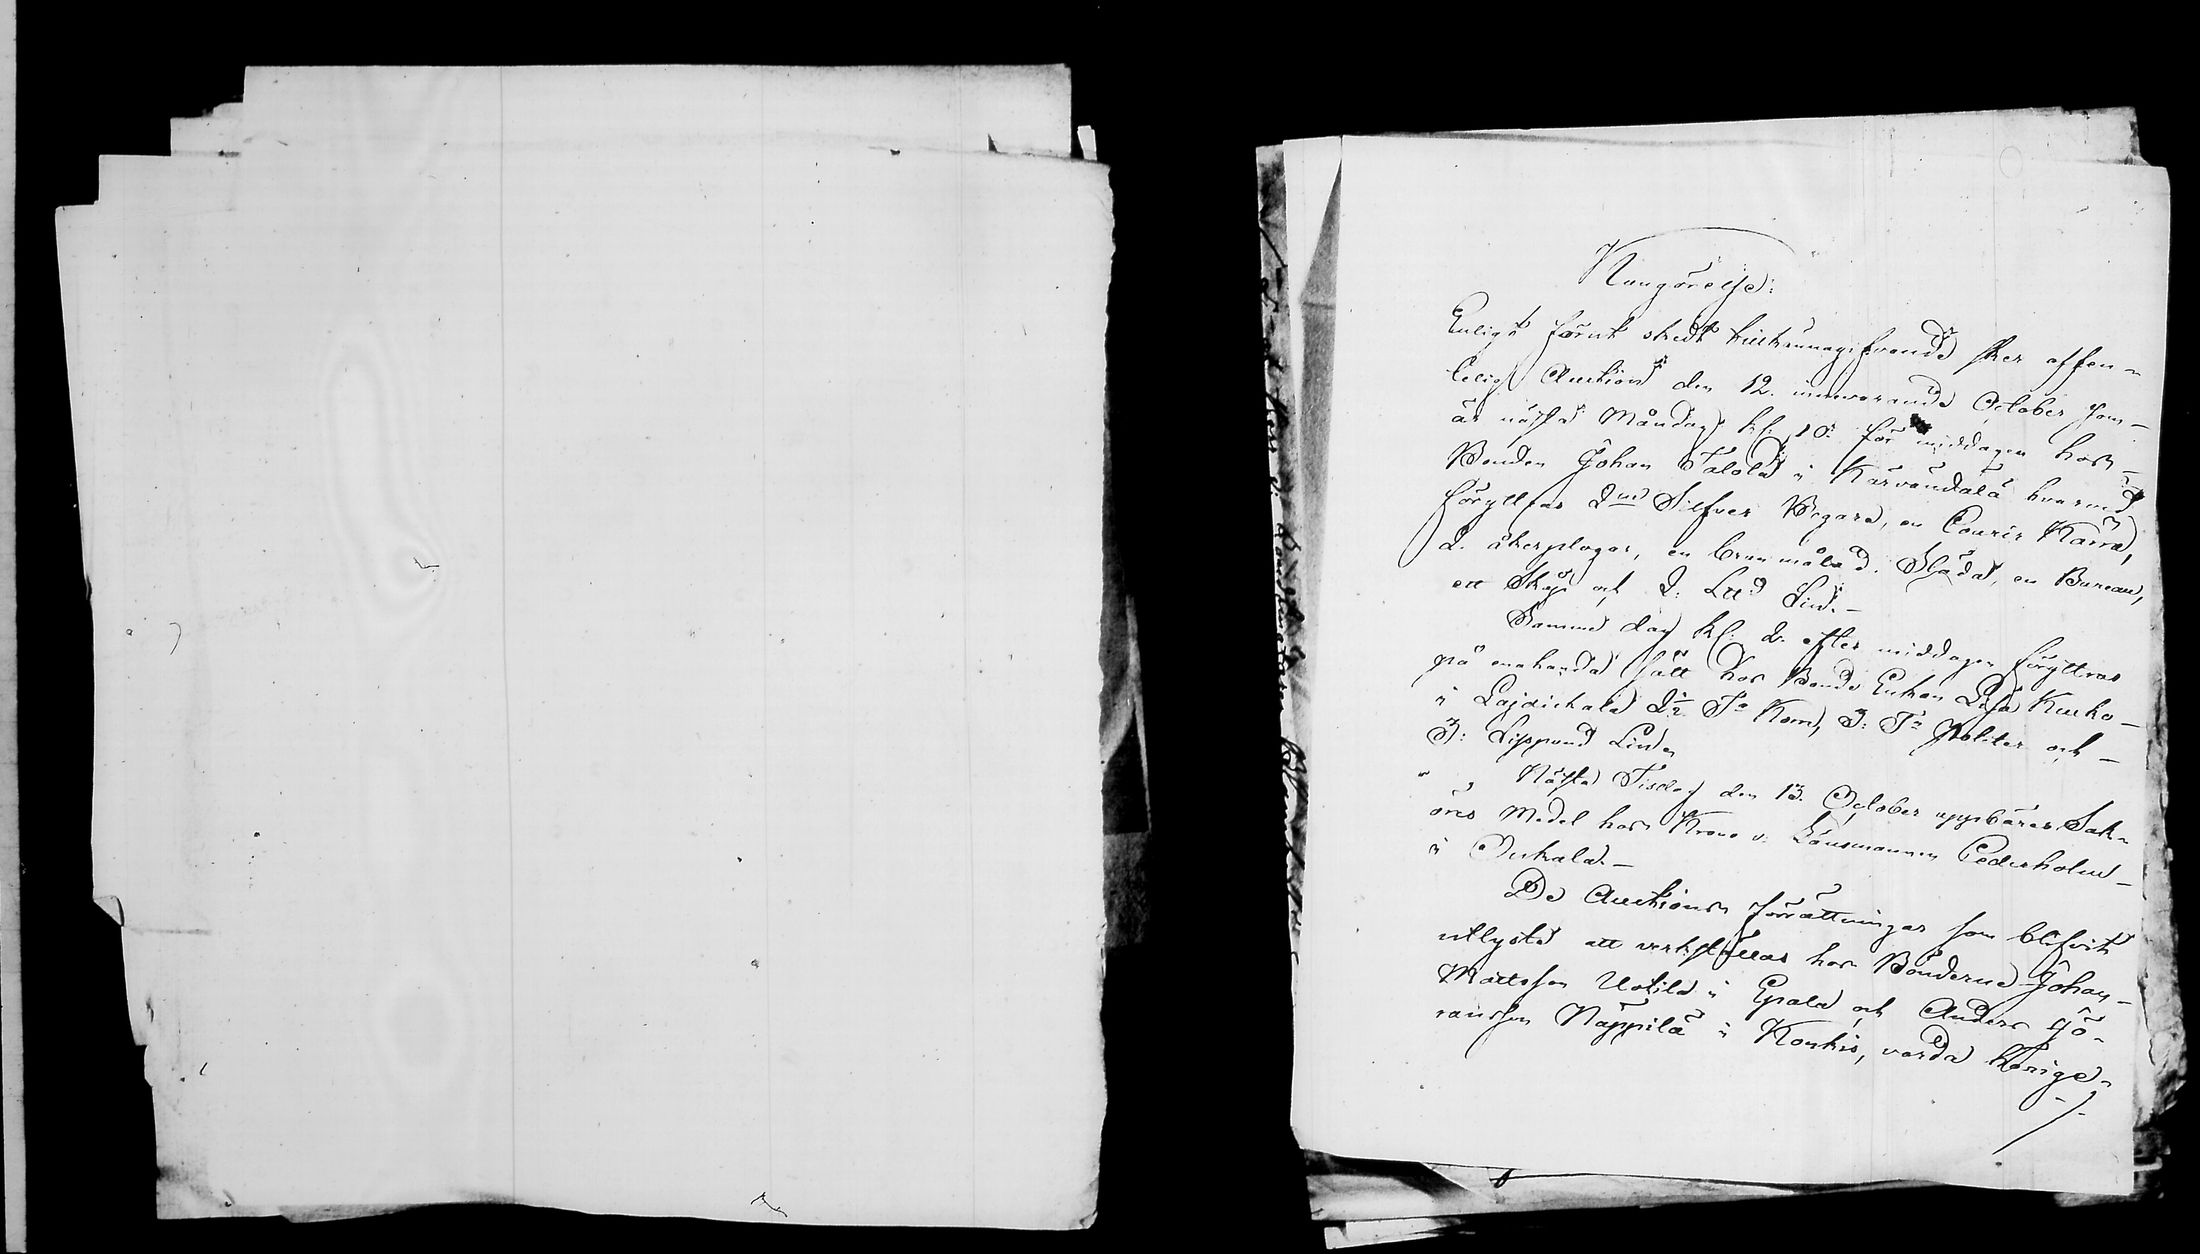 Kungörelse:
Enligt förut skedt tillkännagifvande sker offen-
telig Auction den 12. innevarande October som
är nästa Måndag kl: 10: för middagen hos
Bonden Johan Talola i Karvandala hvarvid
föryttras 2ne Silfver Bägare, en Courir Kärra,
2. åkerplogar, en brunmålad Släda, en Bureau,
ett Skåp och 2: Ltt Lin. —
Samma dag kl: 2. efter middagen föryttras
på enahanda sätt hos Bonde Enkan Lisa Kurko
i Lajdickala 2½ Tr Korn, 3: Tr Potäter och
3: Lispund Lin.
Nästa Tisdag den 13. October uppbäres Sak-
öres Medel hos Krono v: Länsmannen Cederholm
i Onkala. —
De Auctions förrättningar som blifvit
utlyste att verkställas hos Bönderne Johan
Mattsson Uotila i Epala och Anders Gö-
ransson Näppilä i Konkis, varda härige-